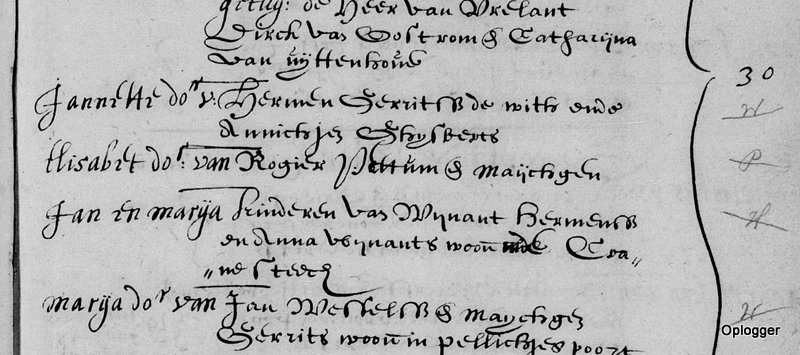 getuy: de Heer van Vrelant
Dirck van Oostrom & Catharijna
van uyttenhove
30
Jannette dor v: Hermen Gerritss de with ende
Annichjen Ghysberts
W
Elisabet dor: van Rogier Pottum & maijchgen
P
Jan en marija kinderen van Wijnant Hermenss
H
en Anna wijnants woon inde Cra„
„nesteech
marija dor van Jan Wesselss & maychgen
W
Gerrits woon in pellichjes poort
Oplogger